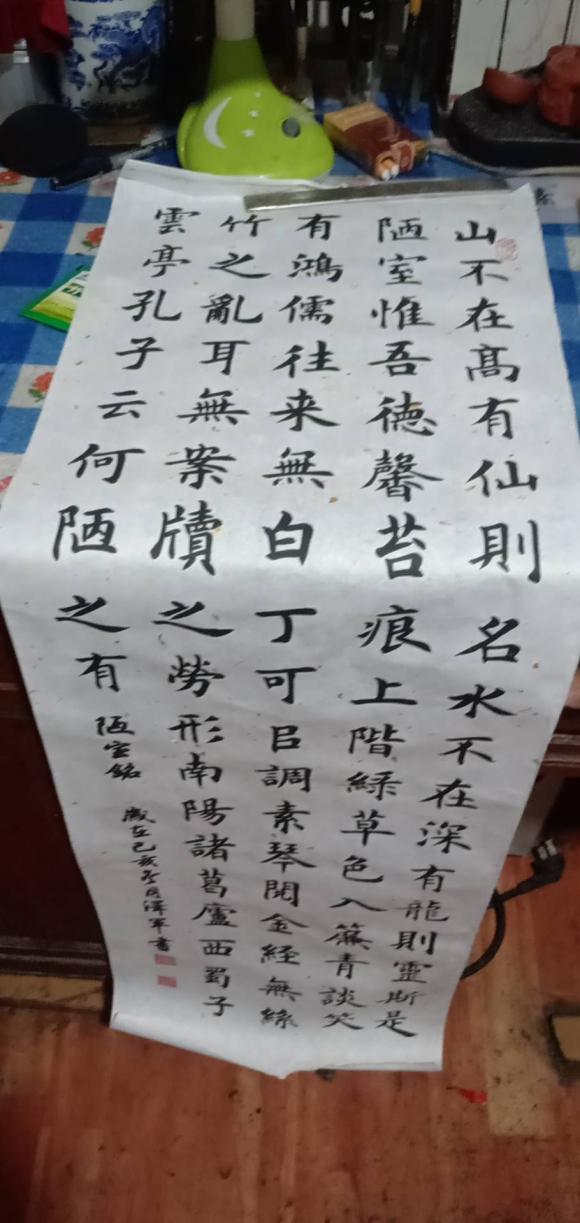 山不在高有仙則名水不在深有龍則靈斯是
陋室惟吾德馨苔痕上階緑草色入簾青談笑
有鴻儒往来無白丁可㠯調素琴閱金経無絲
竹之亂耳無案牘之勞形南陽諸葛廬西蜀子
雲亭孔子云何陋之有
陋室銘
歲在己亥冬月澤軍書